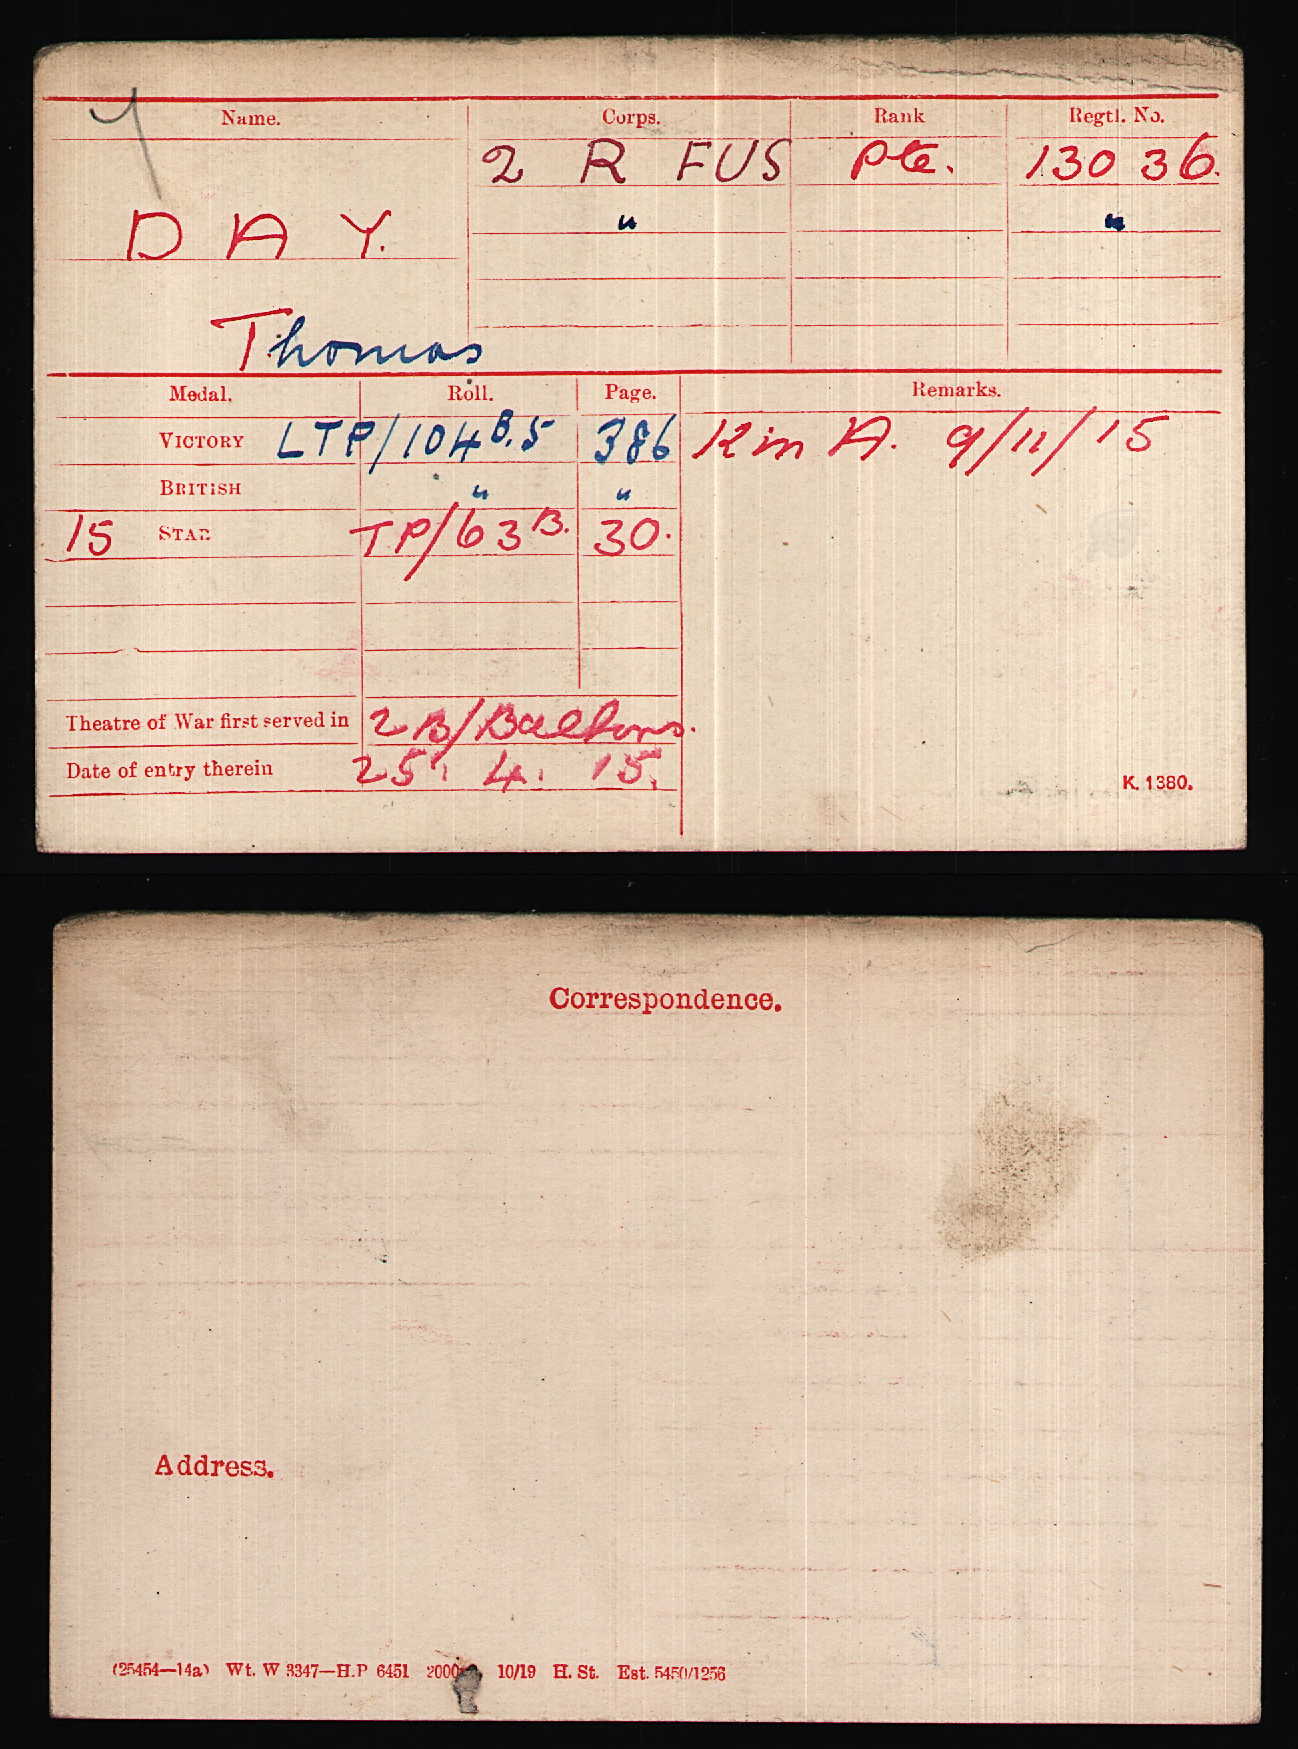 Name. Corps. Rank Regtl. No.
2 R FUS Pte. 13036.
" "
DAY.
Thomas
Medal. Roll. Page. Remarks.
VICTORY LTP/104B.5 386 K in A. 9/11/15
BRITISH " "
15 STAR TP/63B. 30.
Theatre of War first served in 2B/Balkans.
Date of entry therein 25. 4. 15.
K. 1380.
Correspondence.
Address.
(25454—14a) Wt. W 3347—H.P 6451 10/19 H. St. Est. 5450/1256